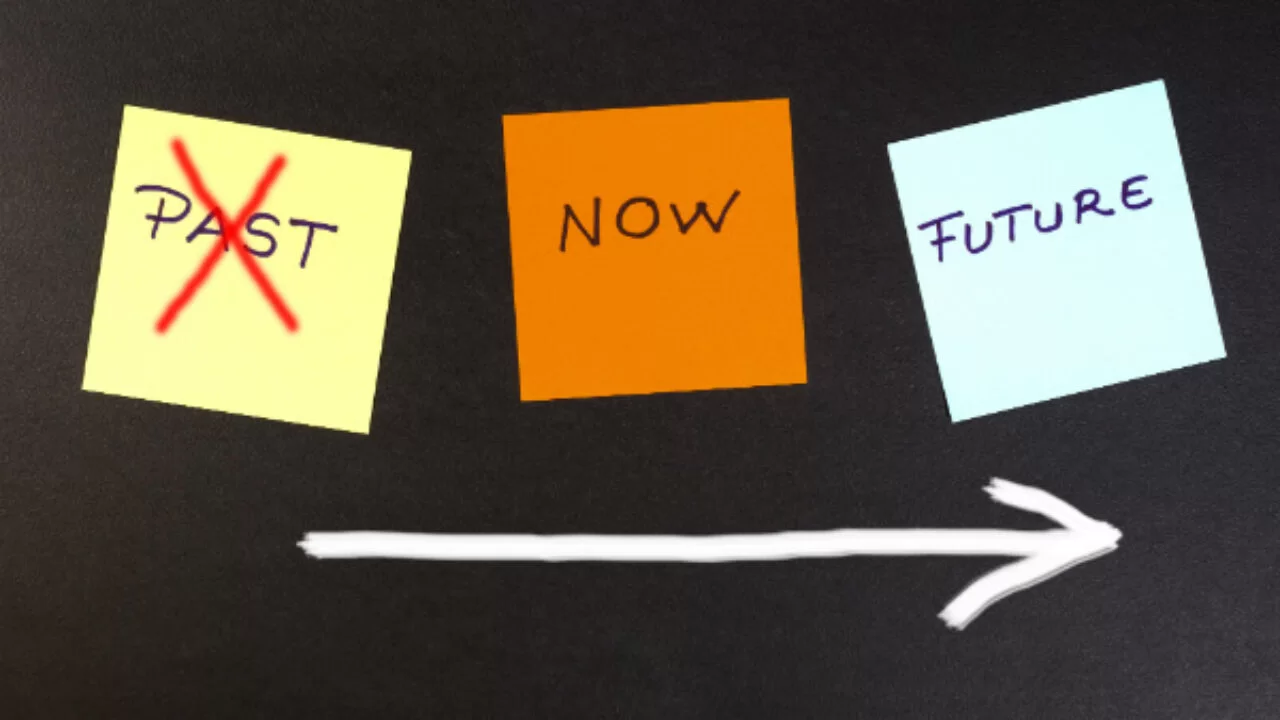 PAST
NOW
FUTURE